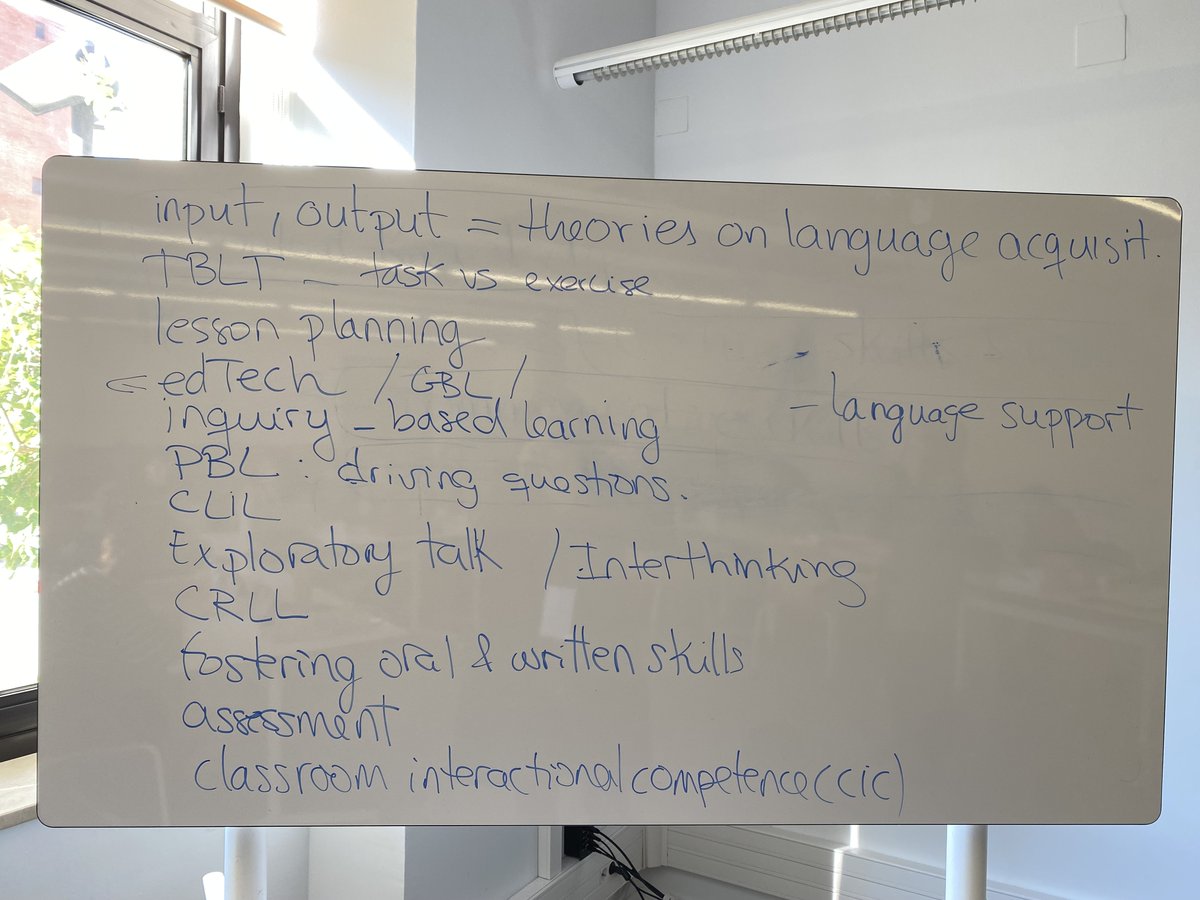 input, output = theories on language acquisit.
TBLT - task vs exercise
lesson planning
edTech / GBL /
- language support
inquiry-based learning
PBL : driving questions.
CLIL
Exploratory talk / Interthinking
CRLL
fostering oral & written skills
assessment
classroom interactional competence (CIC)